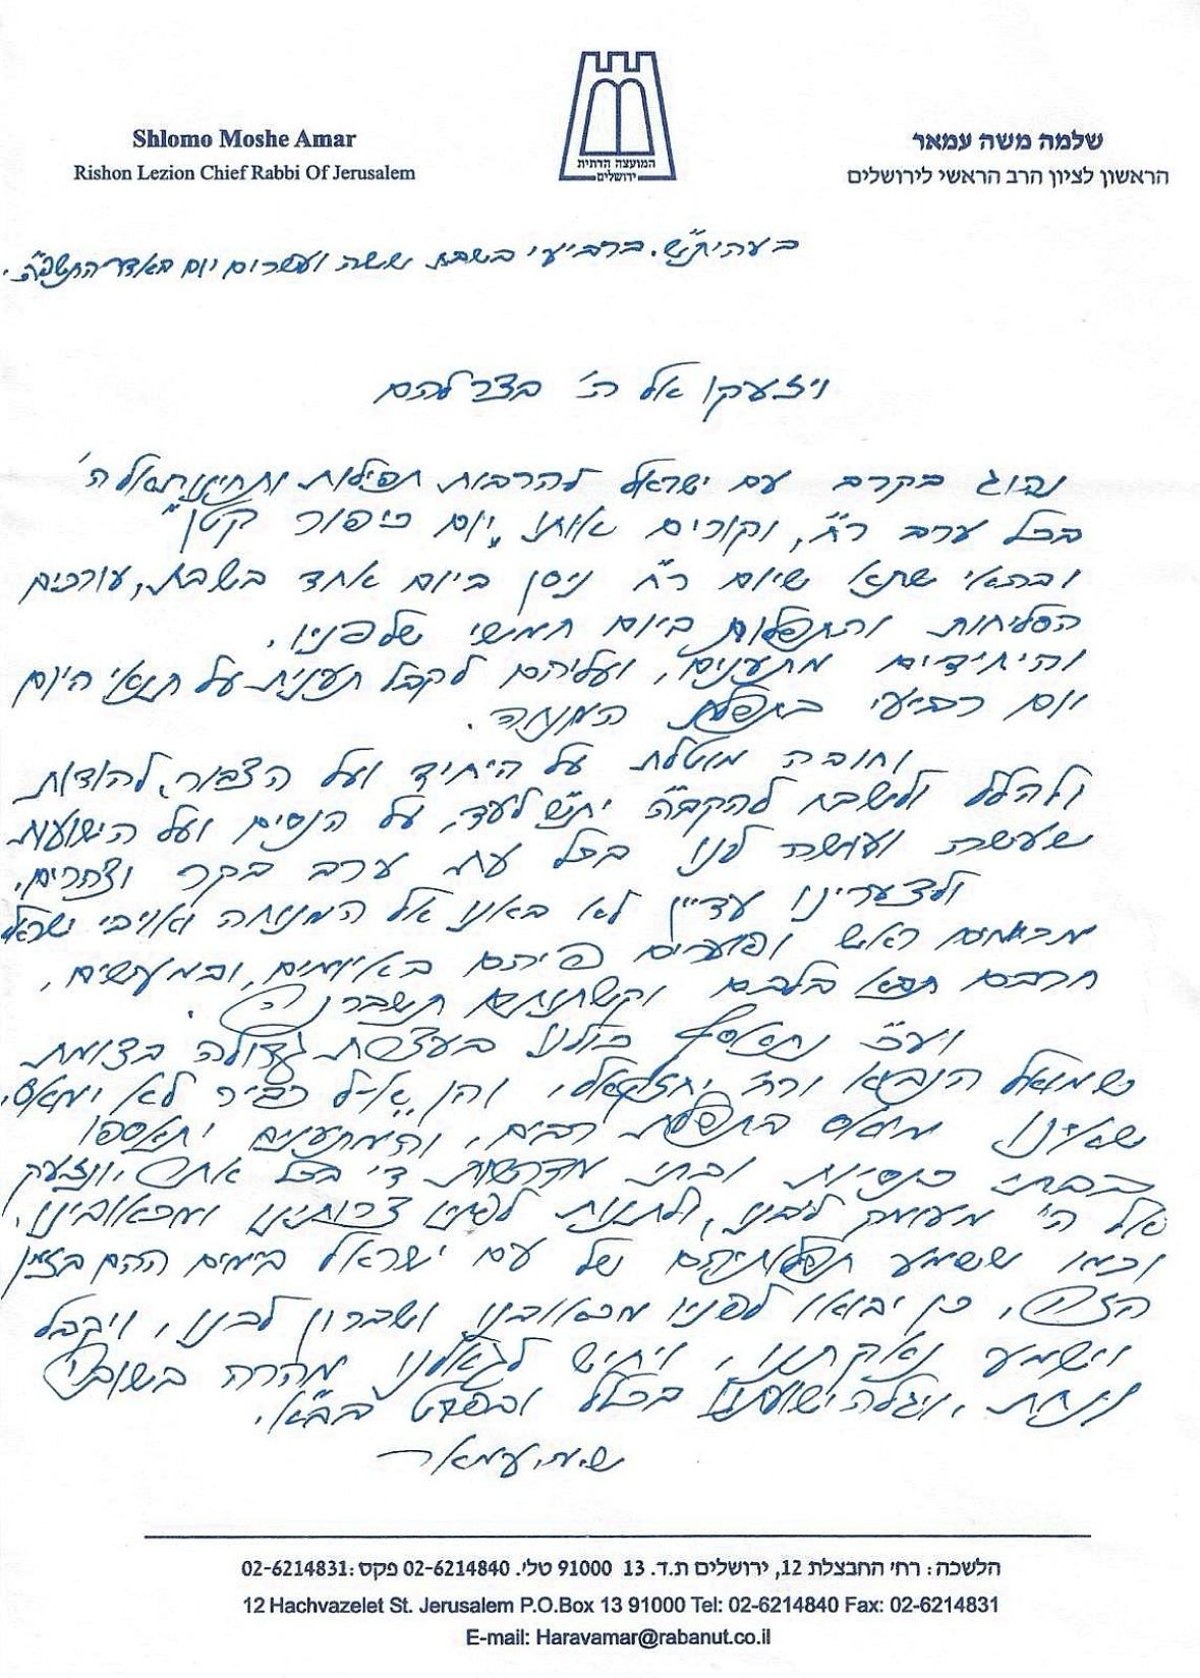 Shlomo Moshe Amar
Rishon Lezion Chief Rabbi Of Jerusalem
המועצה הדתית
ירושלים
שלמה משה עמאר
הראשון לציון הרב הראשי לירושלים
בעהית"ש. ברביעי בשבת ששה ועשרים יום באדר התשפ"ה.
ויזעקו אל ה' בצר להם
נהוג בקרב עם ישראל להרבות תפילות ותחינות אל ה'
בכל ערב ר"ח, וקורים אותו "יום כיפור קטן"
ובהאי שתא שיום ר"ח ניסן ביום אחד בשבת, עורכים
הסליחות והתפלות ביום חמישי שלפניו.
והיחידים מתענים, ועליהם לקבל תענית על תנאי היום
יום רביעי בתפלת המנחה.
וחובה מוטלת על היחיד ועל הצבור, להודות
ולהלל ולשבח להקב"ה ית"ש לעד, על הנסים ועל הישועות
שעשה ועושה לנו בכל עת ערב בקר וצהרים.
ולצערינו עדיין לא באנו אל המנוחה ואויבי ישראל
מרימים ראש ופוערים פיהם באיומים, ובמעשים,
חרבם תבא בלבם וקשתותם תשברנה.
וע"כ נתאסף כולנו בעצרת גדולה בצומת
שמואל הנביא ורח' יחזקאל, והן א-ל כביר לא ימאס,
שאינו מואס בתפלת רבים, והמתענים יתאספו
בבתי כנסיות ובתי מדרשות די בכל אתר, ונזעק
אל ה' מעומק ליבנו, ולתנות לפניו צרותינו ומכאובינו.
וכמו ששמע תפלותיהם של עם ישראל בימים ההם בזמן
הזה, כן יבואו לפניו מכאובנו ושברון לבנו, ויקבל
וישמע נאקתנו, ויחיש לגאלנו מהרה בשובה
ונחת, ויגלה ישועתנו בכלל ובפרט בב"א.
ש.מ. עמאר
הלשכה: רח' החבצלת 12, ירושלים ת.ד. 13 91000 טלי. 02-6214840 פקס: 02-6214831
12 Hachvazelet St. Jerusalem P.O.Box 13 91000 Tel: 02-6214840 Fax: 02-6214831
E-mail: Haravamar@rabanut.co.il